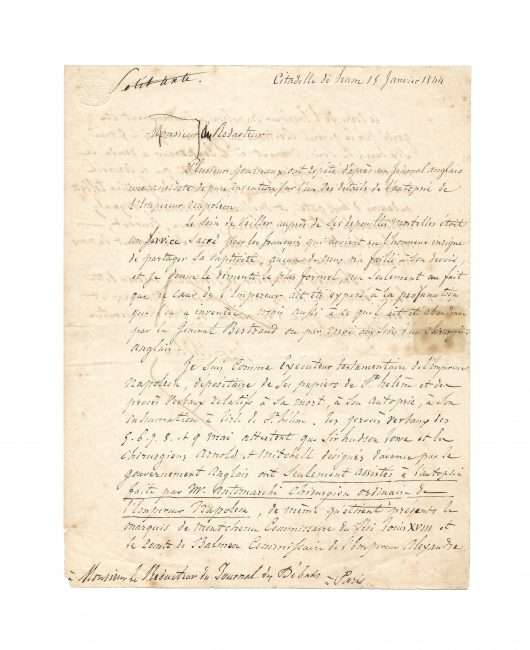 Petit texte.
Citadelle de ham 15 Janvier 1844
Monsieur le Rédacteur
Plusieurs journaux ont répété d'après un journal anglais
une anecdote de pure invention sur l'un des détails de l'autopsie de
l'Empereur napoleon.
Le soin de veiller auprès de ses dépouilles mortelles était
un service sacré pour les français qui avaient eu l'honneur insigne
de partager sa captivité, aucun de nous n'a failli à son devoir,
et je donne le démenti le plus formel, non seulement au fait
que le cœur de l'Empereur ait été exposé à la profanation
que l'on a inventée, mais aussi à ce qu'il ait été
par le Général Bertrand ou par moi aux soins d'un chirurgien
anglais.
Je suis comme Executeur testamentaire de l'Empereur
napoleon, depositaire de ses papiers de Ste helène et des
procès verbaux relatifs à sa mort, à son autopsie, à son
inhumation à l'isle de Ste hélène. les procès verbaux des
5. 6. 7. 8. et 9 mai attestent que Sir hudson Lowe et les
chirurgiens Arnold et Mitchell designés d'avance par le
gouvernement anglais ont seulement assisté à l'autopsie
faite par Mr. Antomarchi chirurgien ordinaire de
l'Empereur Napoleon, de même qu'étaient presents le
marquis de montchenu Commissaire du Roi louis XVIII et
le Comte de Balmen Commissaire de l'Empereur Alexandre
à Monsieur le Rédacteur du Journal des Débats à Paris